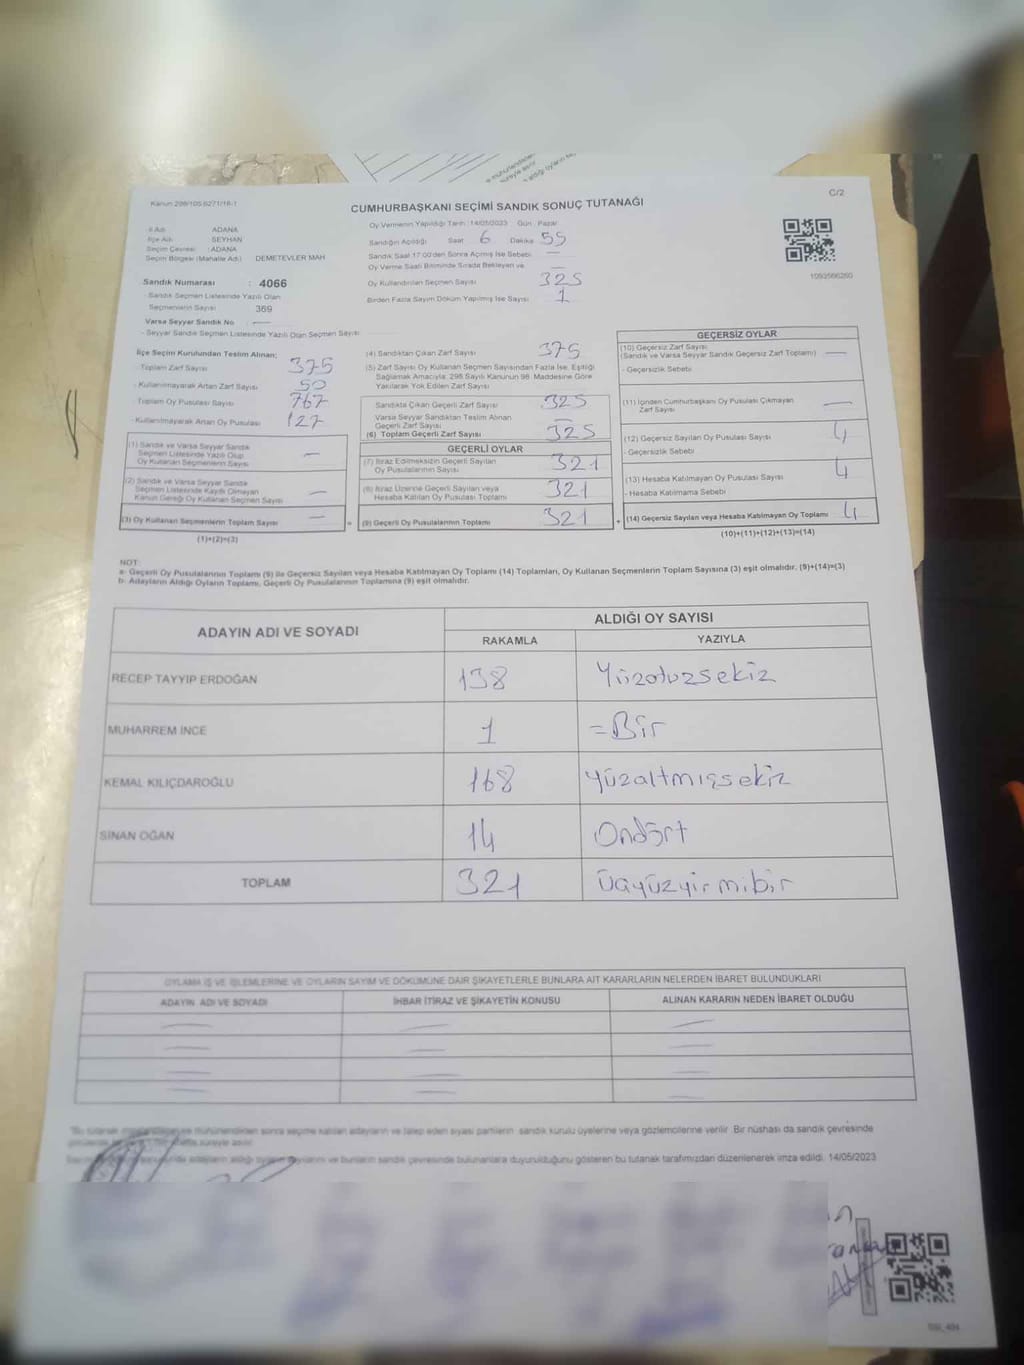 C/2
Kanun 298/105 6271/16-1
CUMHURBAŞKANI SEÇİMİ SANDIK SONUÇ TUTANAĞI
İl Adı : ADANA
İlçe Adı : SEYHAN
Seçim Çevresi : ADANA
Seçim Bölgesi (Mahalle Adı) DEMETEVLER MAH
Sandık Numarası : 4066
- Sandık Seçmen Listesinde Yazılı Olan
Seçmenlerin Sayısı 369
Varsa Seyyar Sandık No : —
- Seyyar Sandık Seçmen Listesinde Yazılı Olan Seçmen Sayısı
Oy Vermenin Yapıldığı Tarih :14/05/2023 Gün : Pazar
Sandığın Açıldığı Saat 6 Dakika 55
Sandık Saat 17:00'den Sonra Açılmış İse Sebebi —
Oy Verme Saati Bitiminde Sırada Bekleyen ve —
Oy Kullandırılan Seçmen Sayısı 325
Birden Fazla Sayım Döküm Yapılmış İse Sayısı 1
1093566260
İlçe Seçim Kurulundan Teslim Alınan;
- Toplam Zarf Sayısı 375
- Kullanılmayarak Artan Zarf Sayısı 50
- Toplam Oy Pusulası Sayısı 767
- Kullanılmayarak Artan Oy Pusulası 127
(1) Sandık ve Varsa Seyyar Sandık
Seçmen Listesinde Yazılı Olup
Oy Kullanan Seçmenlerin Sayısı —
(2) Sandık ve Varsa Seyyar Sandık
Seçmen Listesinde Kayıtlı Olmayan
Kanun Gereği Oy Kullanan Seçmen Sayısı —
(3) Oy Kullanan Seçmenlerin Toplam Sayısı —
(1)+(2)=(3)
=
(4) Sandıktan Çıkan Zarf Sayısı 375
(5) Zarf Sayısı Oy Kullanan Seçmen Sayısından Fazla İse, Eşitliği
Sağlamak Amacıyla; 298 Sayılı Kanunun 98. Maddesine Göre
Yakılarak Yok Edilen Zarf Sayısı
Sandıkta Çıkan Geçerli Zarf Sayısı 325
Varsa Seyyar Sandıktan Teslim Alınan
Geçerli Zarf Sayısı —
(6) Toplam Geçerli Zarf Sayısı 325
GEÇERLİ OYLAR
(7) İtiraz Edilmeksizin Geçerli Sayılan
Oy Pusulalarının Sayısı 321
(8) İtiraz Üzerine Geçerli Sayılan veya
Hesaba Katılan Oy Pusulası Toplamı 321
(9) Geçerli Oy Pusulalarının Toplamı 321
+
GEÇERSİZ OYLAR
(10) Geçersiz Zarf Sayısı
(Sandık ve Varsa Seyyar Sandık Geçersiz Zarf Toplamı) —
- Geçersizlik Sebebi
(11) İçinden Cumhurbaşkanı Oy Pusulası Çıkmayan
Zarf Sayısı —
(12) Geçersiz Sayılan Oy Pusulası Sayısı 4
- Geçersizlik Sebebi
(13) Hesaba Katılmayan Oy Pusulası Sayısı 4
- Hesaba Katılmama Sebebi
(14) Geçersiz Sayılan veya Hesaba Katılmayan Oy Toplamı 4
(10)+(11)+(12)+(13)=(14)
NOT:
a- Geçerli Oy Pusulalarının Toplamı (9) ile Geçersiz Sayılan veya Hesaba Katılmayan Oy Toplamı (14) Toplamları, Oy Kullanan Seçmenlerin Toplam Sayısına (3) eşit olmalıdır. (9)+(14)=(3)
b- Adayların Aldığı Oyların Toplamı, Geçerli Oy Pusulalarının Toplamına (9) eşit olmalıdır.
ADAYIN ADI VE SOYADI ALDIĞI OY SAYISI
RAKAMLA YAZIYLA
RECEP TAYYİP ERDOĞAN 138 Yüzotuzsekiz
MUHARREM İNCE 1 =Bir
KEMAL KILIÇDAROĞLU 168 yüzaltmışsekiz
SİNAN OĞAN 14 Ondört
TOPLAM 321 üçyüzyirmibir
OYLAMA İŞ VE İŞLEMLERİNE VE OYLARIN SAYIM VE DÖKÜMÜNE DAİR ŞİKAYETLERLE BUNLARA AİT KARARLARIN NELERDEN İBARET BULUNDUKLARI
ADAYIN ADI VE SOYADI İHBAR İTİRAZ VE ŞİKAYETİN KONUSU ALINAN KARARIN NEDEN İBARET OLDUĞU
sonra seçime katılan adayların ve talep eden siyasi partilerin sandık kurulu üyelerine veya gözlemcilerine verilir. Bir nüshası da sandık çevresinde
süreyle asılır
adayların aldığı oyların sayılarını ve bunların sandık çevresinde bulunanlara duyurulduğunu gösteren bu tutanak tarafımızdan düzenlenerek imza edildi. 14/05/2023